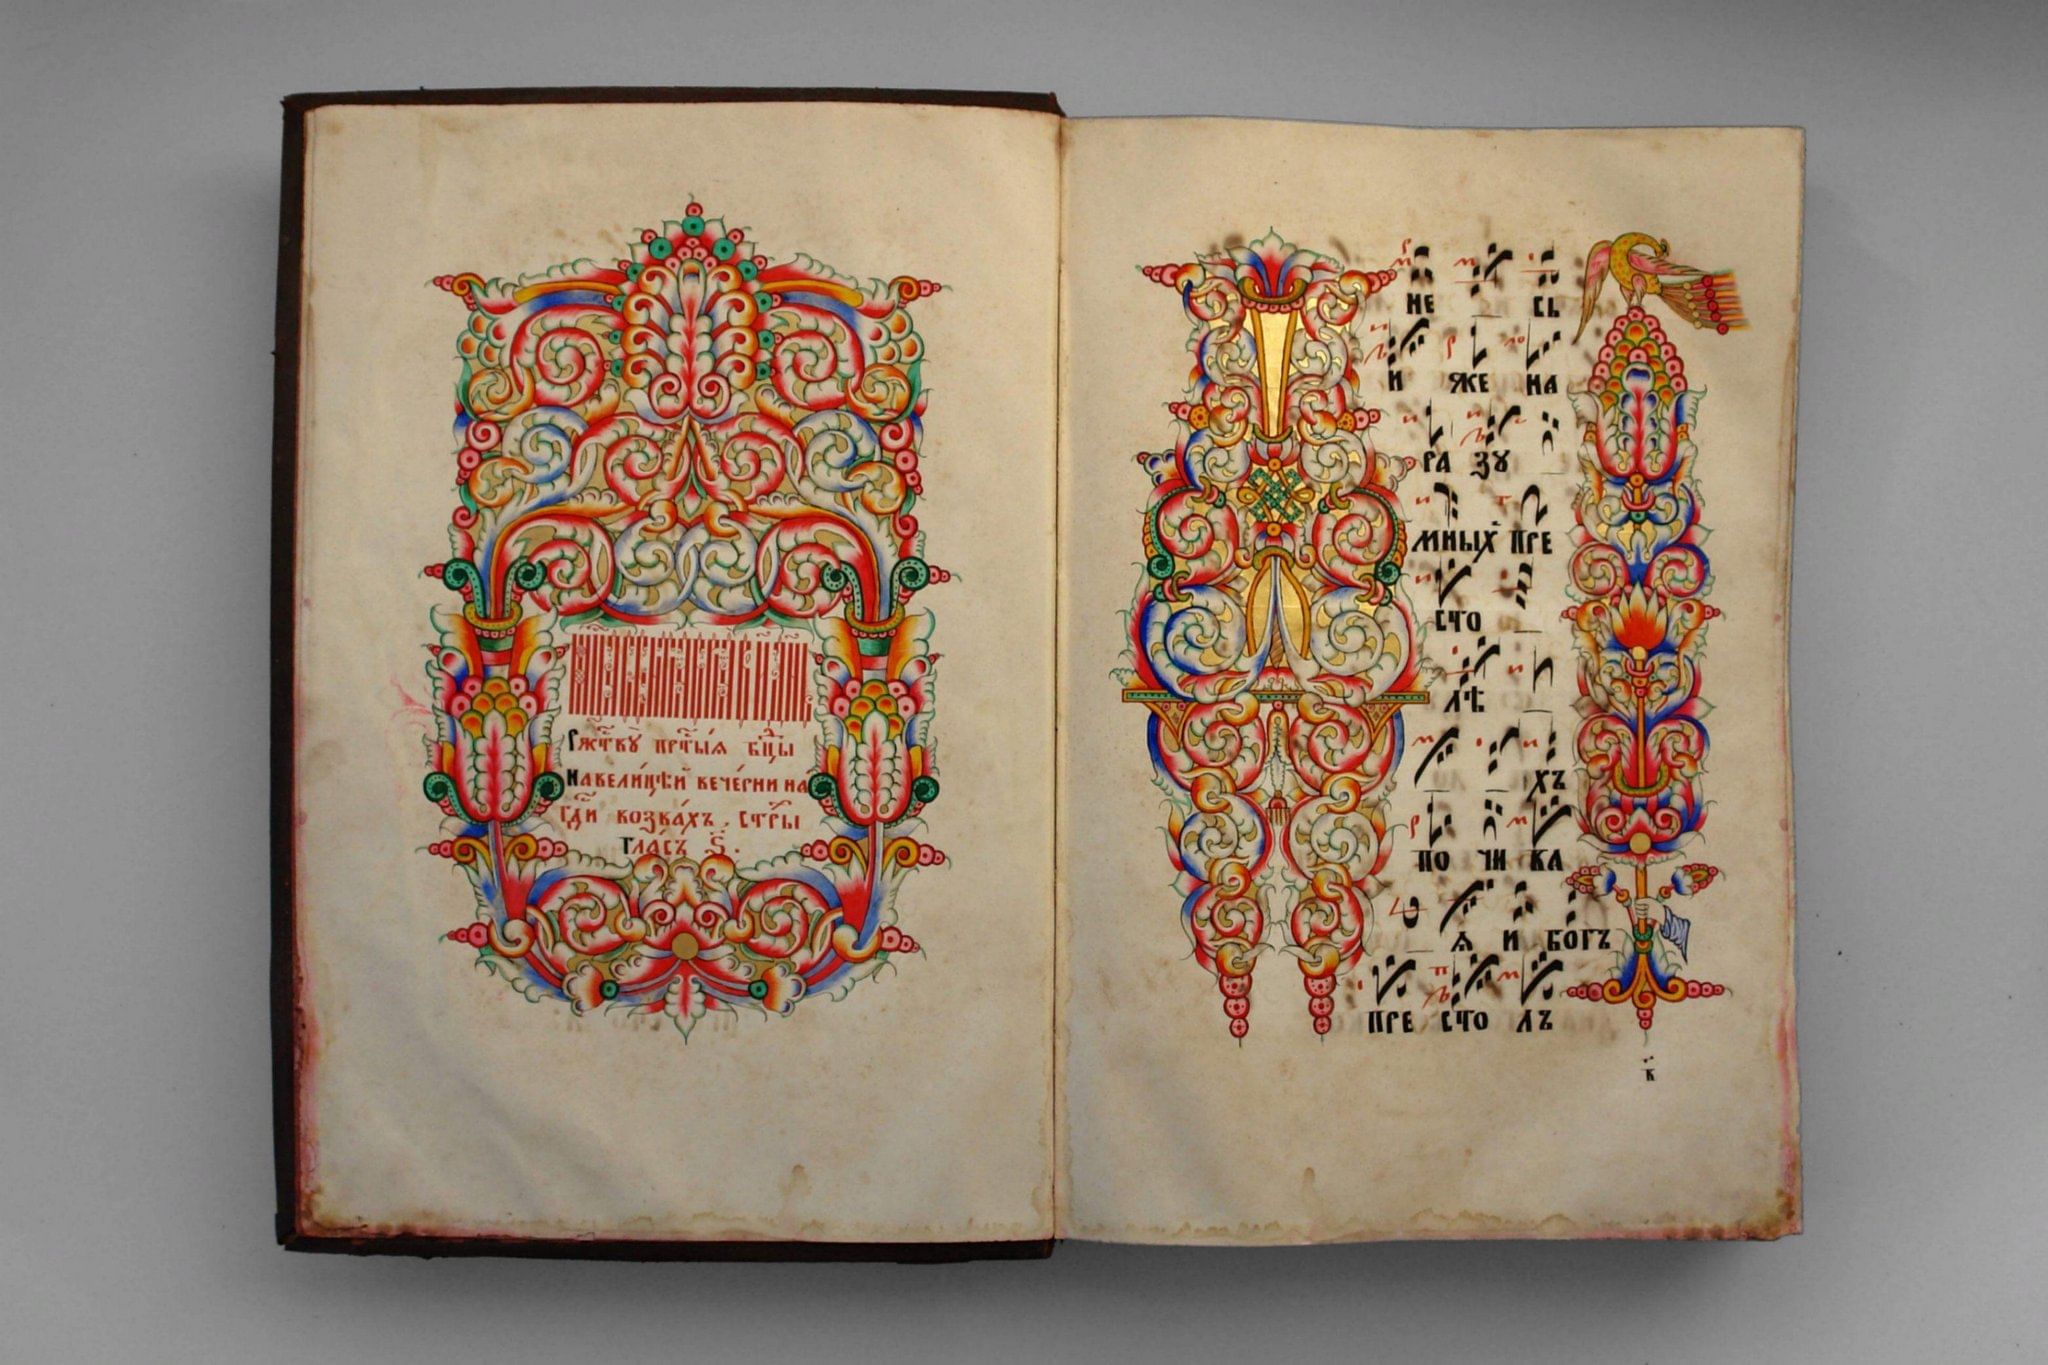 Ржⷭ҇твꙋ̀ прⷭ҇ты́ѧ бцⷣы
Навели́цѣй вече́рни на
гдⷭ҇и возва́хъ. стрⷯы
Гла́съ ѕ҃.
НЕ СЬ
И ЖЕ НА
РА ЗꙊ
МНЫХ̾ ПРЕ
СТО
ЛѢ
ХЪ
ПО ЧИ ВА
Ѧ И БОГЪ
ПРЕ СТО ЛЪ